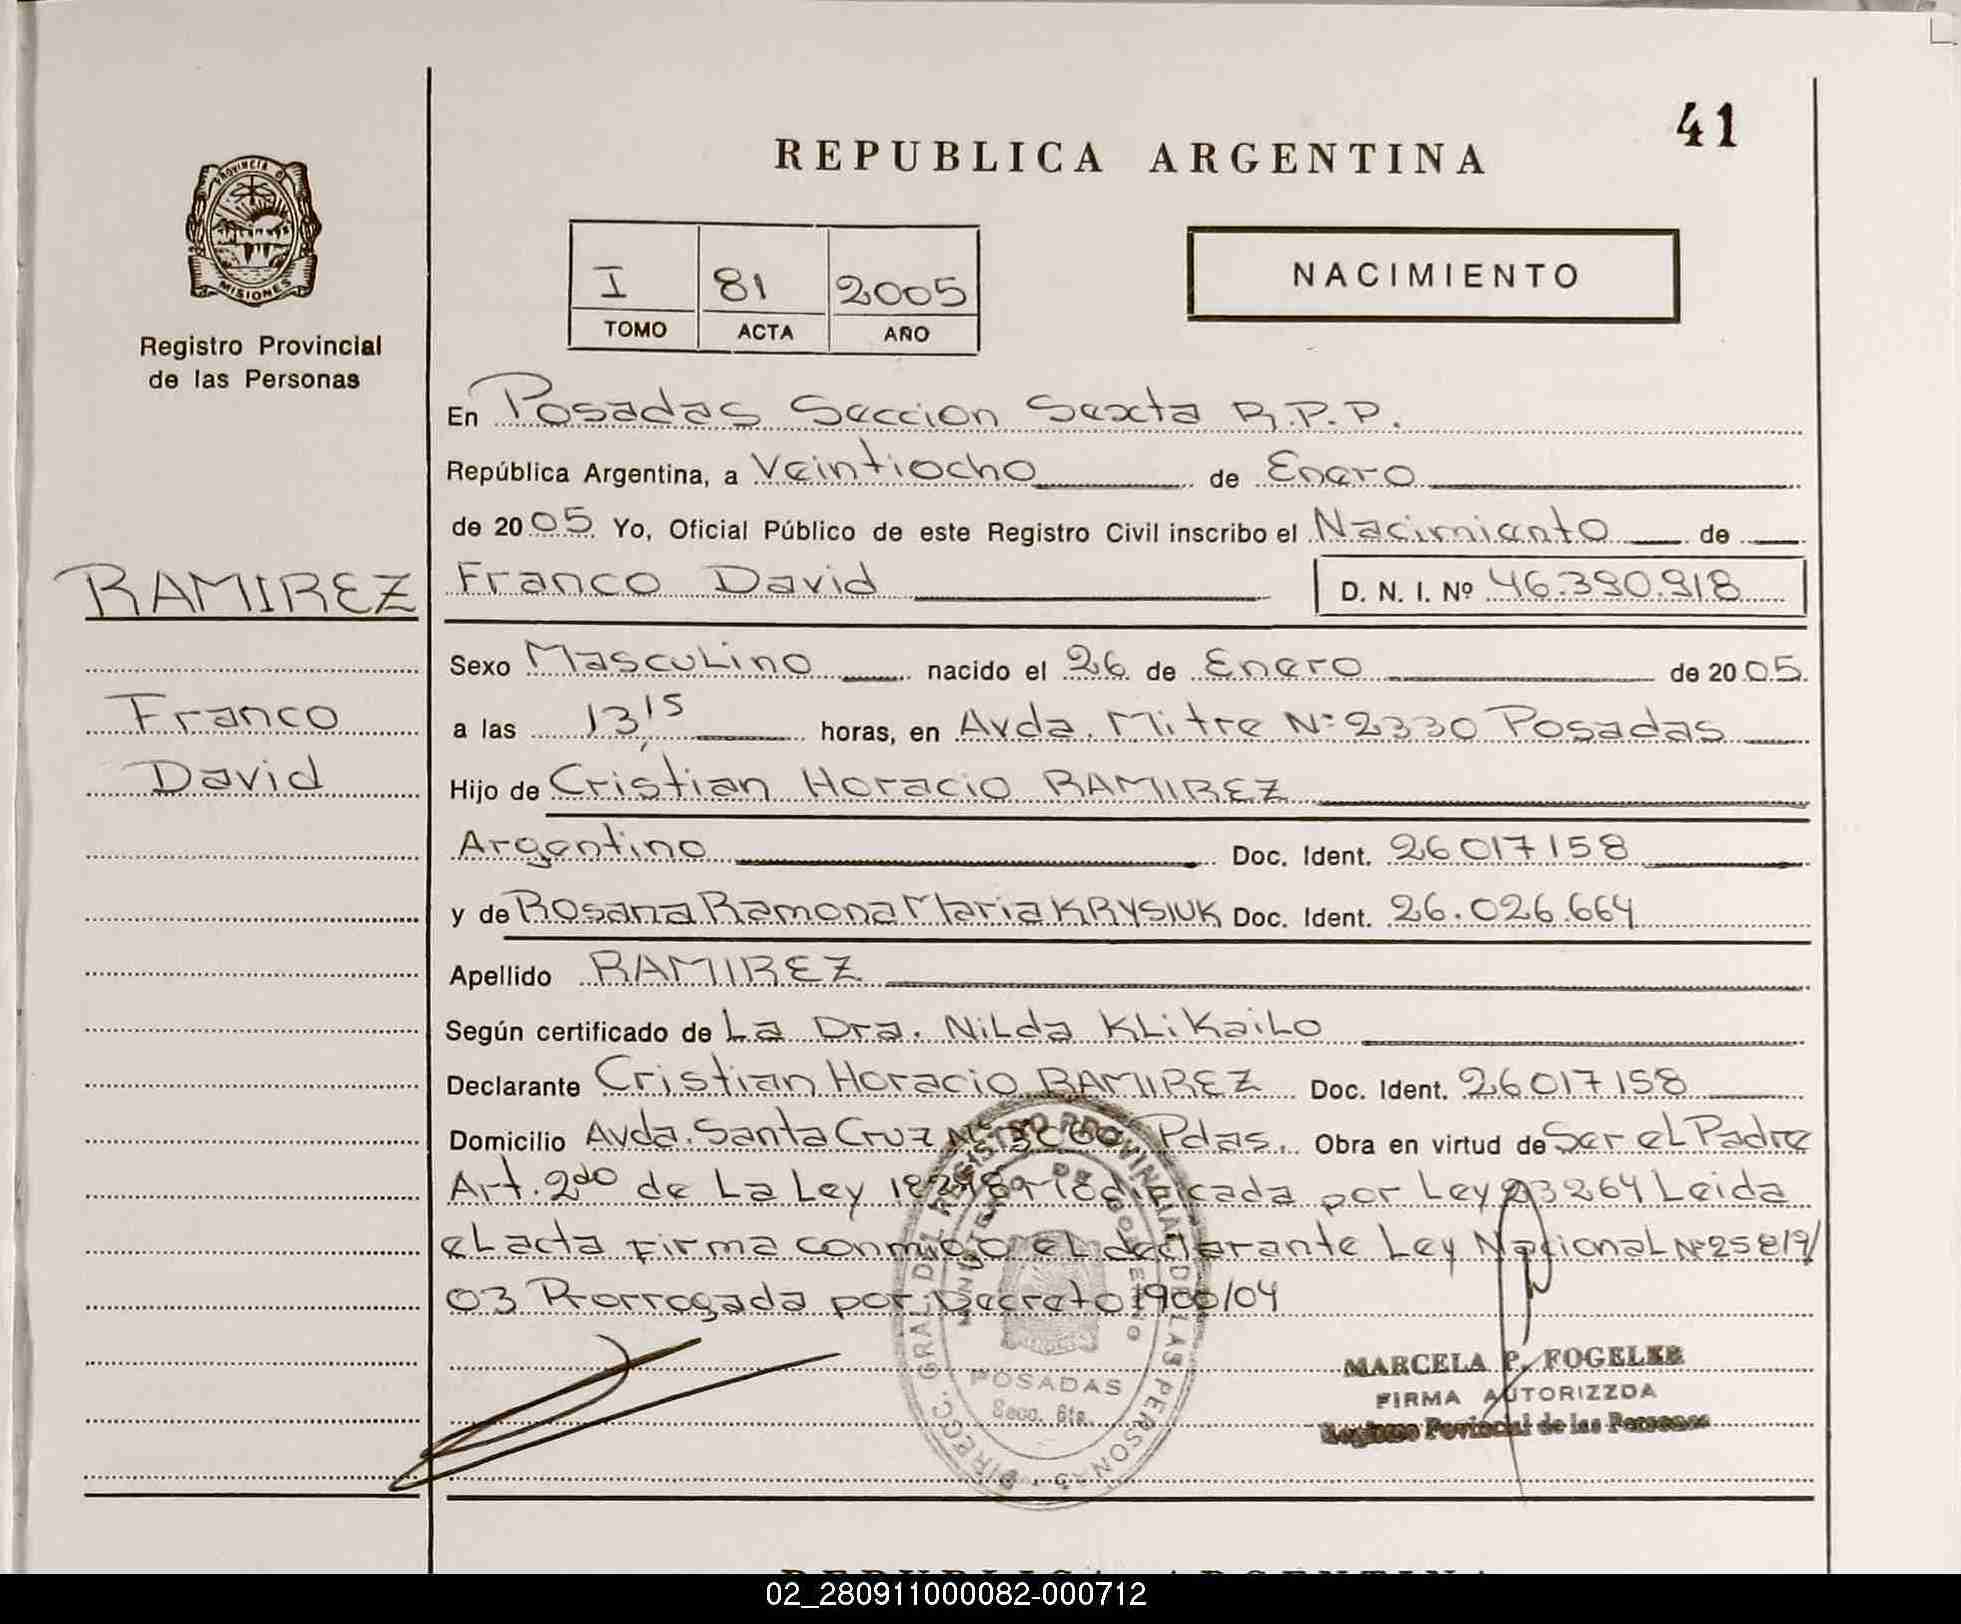 41
REPUBLICA ARGENTINA
PROVINCIA D
MISIONES
Registro Provincial
de las Personas
I 81 2005
TOMO ACTA AÑO
NACIMIENTO
En Posadas Seccion Sexta R.P.P.
República Argentina, a Veintiocho de Enero
de 2005 Yo, Oficial Público de este Registro Civil inscribo el Nacimiento de
RAMIREZ
Franco David D. N. I. Nº 46.390.918
Franco
David
Sexo Masculino nacido el 26 de Enero de 2005
a las 13,15 horas, en Avda. Mitre Nº 2330 Posadas
Hijo de Cristian Horacio RAMIREZ
Argentino Doc. Ident. 26017158
y de Rosana Ramona Maria KRYSIUK Doc. Ident. 26.026.664
Apellido RAMIREZ
Según certificado de La Dra. Nilda KLiKaiLo
Declarante Cristian Horacio RAMIREZ Doc. Ident. 26017158
Domicilio Avda. Santa Cruz Pdas. Obra en virtud de Ser el Padre
Art. 2do de La Ley por Ley 23264 Leida
el acta firma conmigo el declarante Ley Nacional Nº 25819/
03 Prorrogada por Decreto 1900/04
DIRECC. GRAL DEL REGISTRO PROVINCIAL DE LAS PERSONAS
MINISTERIO DE GOBIERNO
POSADAS
Secc. 6ta.
MARCELA P. FOGELER
FIRMA AUTORIZZDA
Registro Povincial de las Personas
REPUBLICA ARGENTINA
02_280911000082-000712